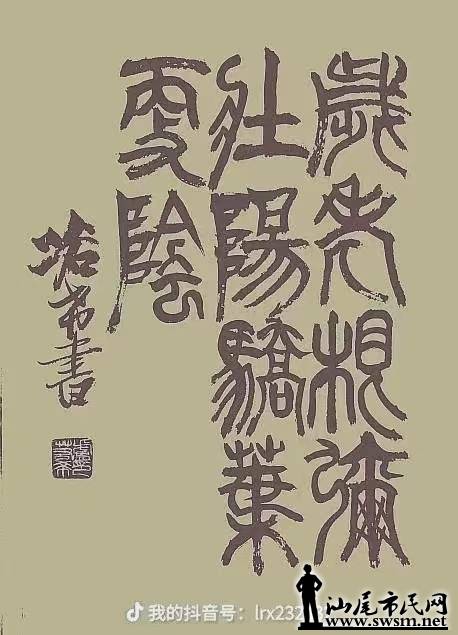 歲老根彌
壯陽驕葉
更陰
書
我的抖音号：lrx232
汕尾市民网
www.swsm.net